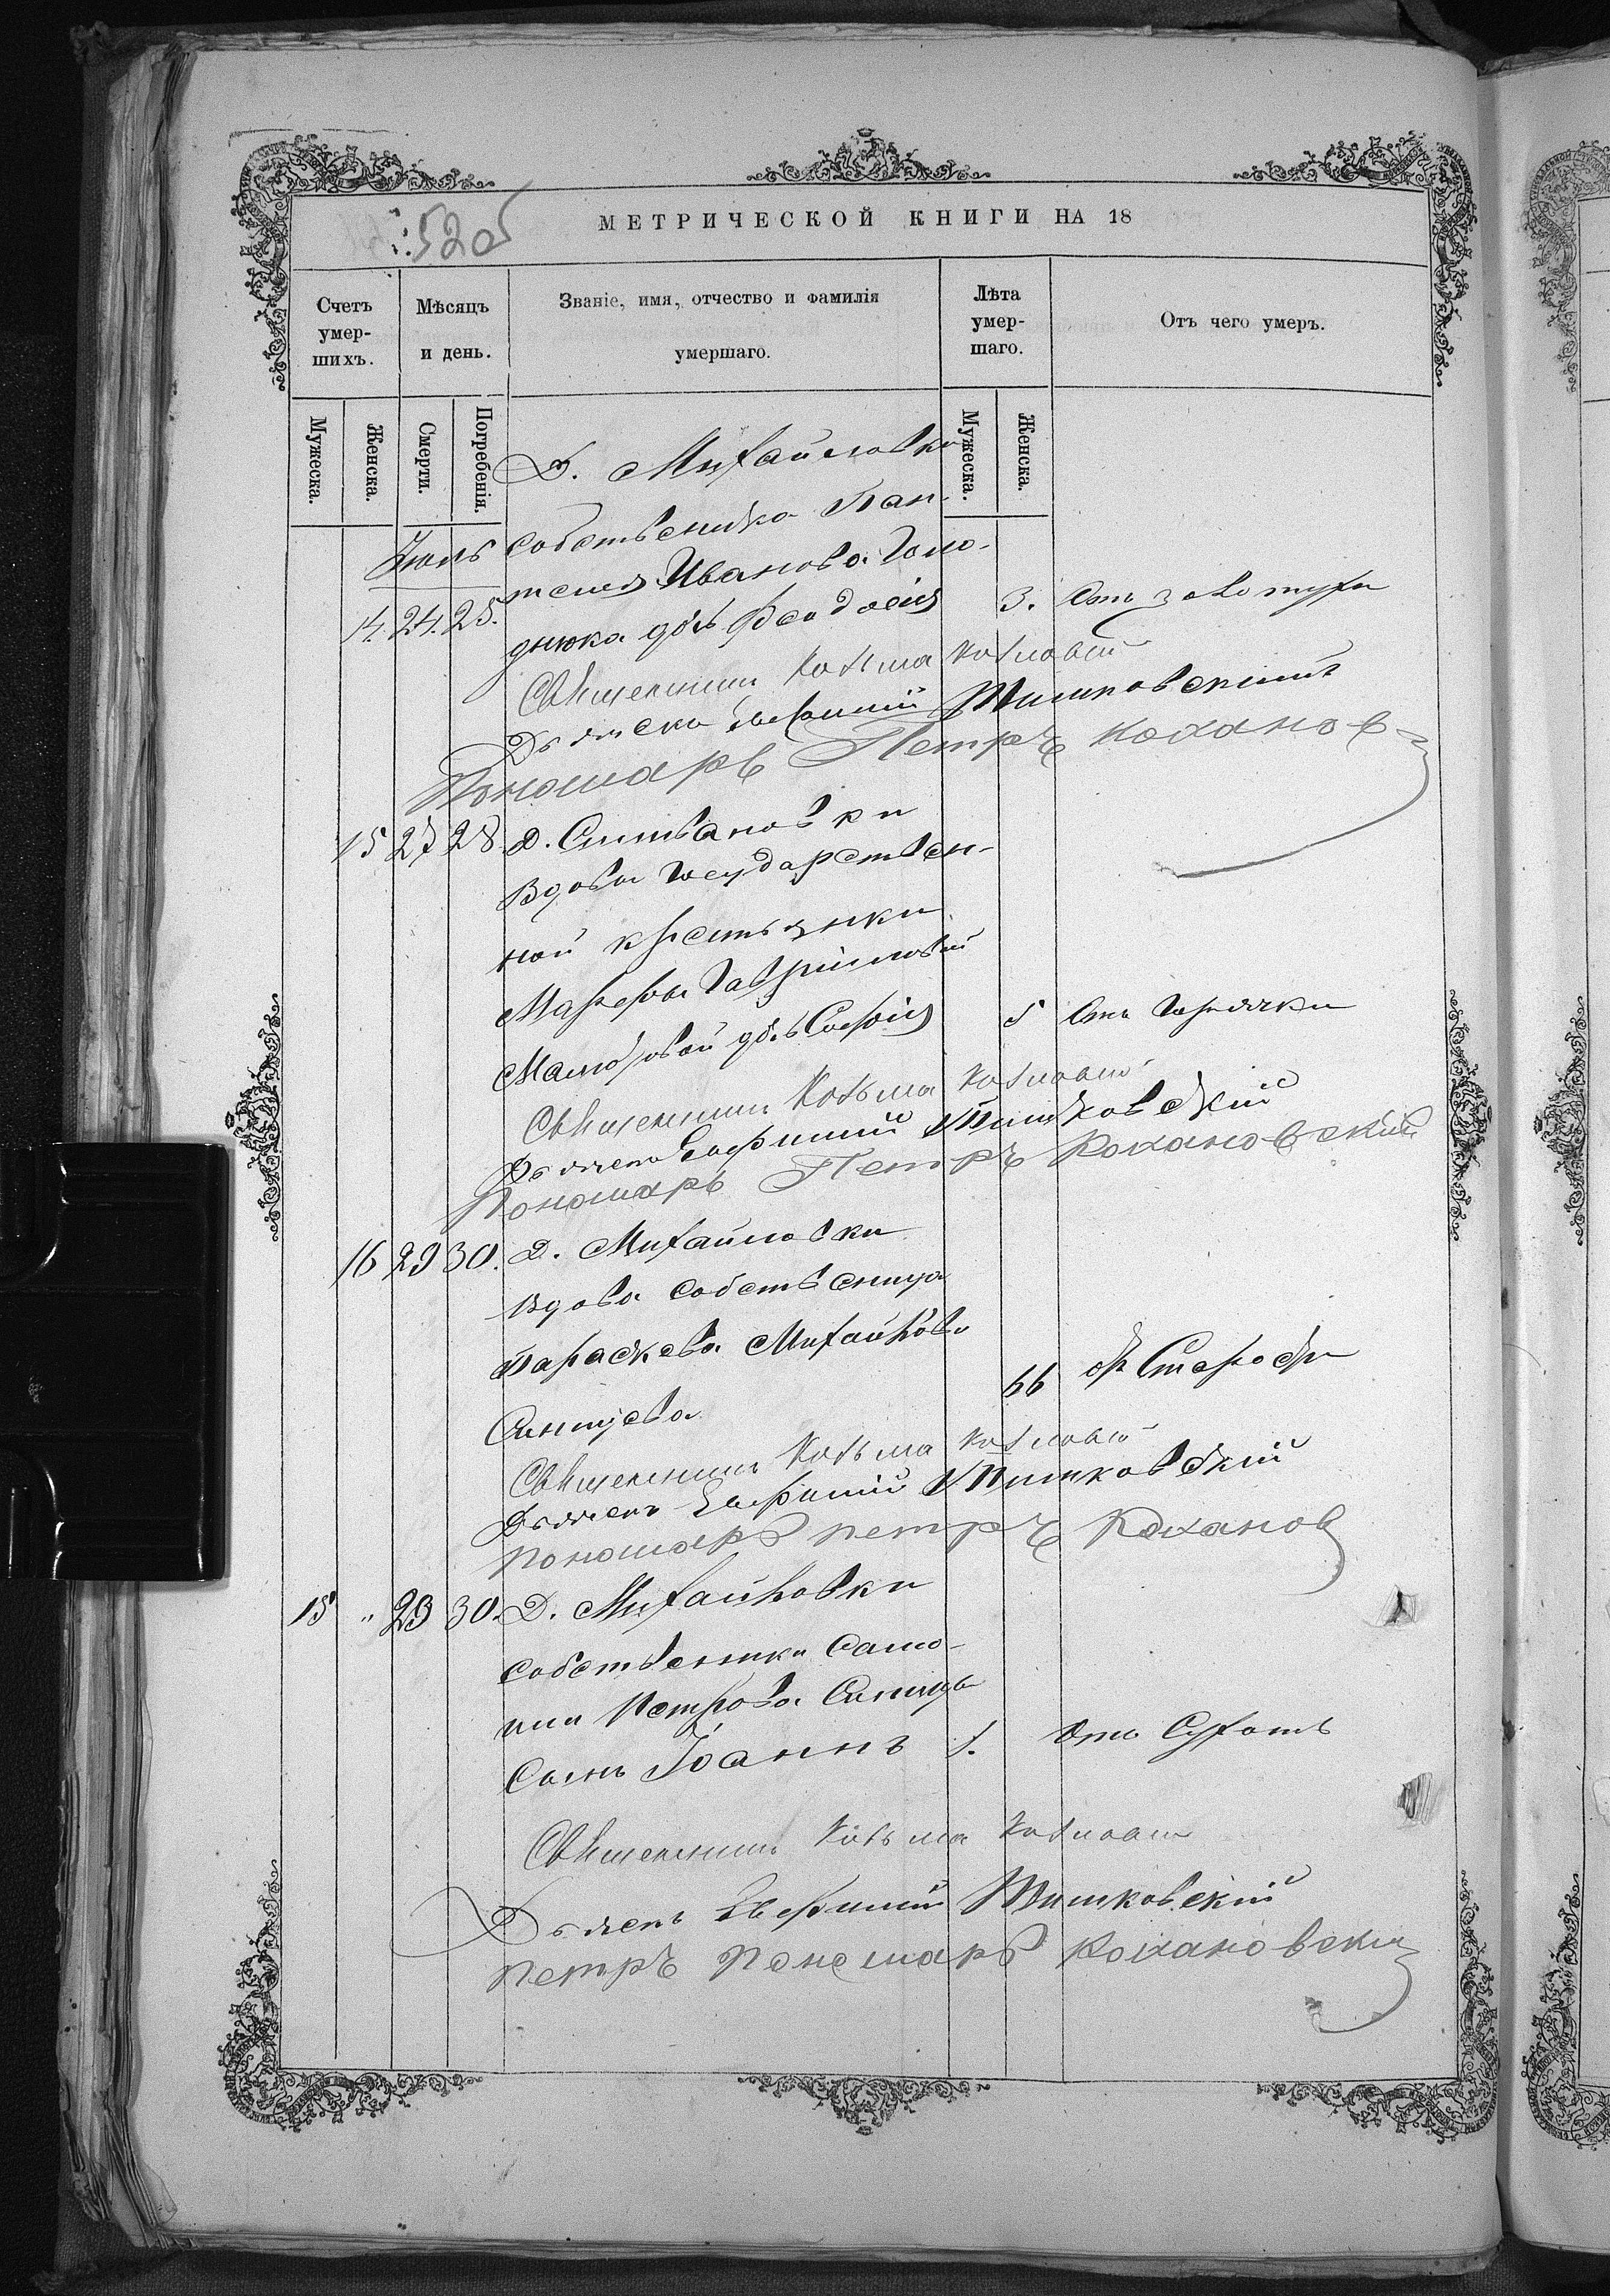 520б
МЕТРИЧЕСКОЙ КНИГИ НА 18
Счетъ умер-шихъ.
Мѣсяцъ и день.
Званіе, имя, отчество и фамилія умершаго.
Лѣта умер-шаго.
Отъ чего умеръ.
Мужеска.
Женска.
Смерти.
Погребенія.
Мужеска.
Женска.
Д. Михайловки
Июль собственика Пан-
телея Иванова Голо-
14. 24. 25. днюка дочь Феодосія 3. Отъ золотухи
Священникъ Козьма
Дьячекъ Евфимій
Пономарь Петръ Коханов
15 27 28. Д. Степановки
Вдовы государствен-
ной крестьянки
Марфы Гавриловой
дочь Софія 5 Отъ горячки
Священникъ Козьма
Дьячекъ Евфимій
Пономарь Петръ Кохановский
16 29 30. Д. Михайловки
вдова собственица
Параскева Михайлова
Синицева 66 От Старости
Священникъ Козьма
Дьячекъ Евфимій
пономарь петръ Коханов
15 " 29 30. Д. Михайловки
собственика Само-
ила Петрова Синицы
Сынъ Іоаннъ 1. Отъ Сухотъ
Священникъ Козьма
Дьячекъ Евфимій
петръ пономарь Кохановски